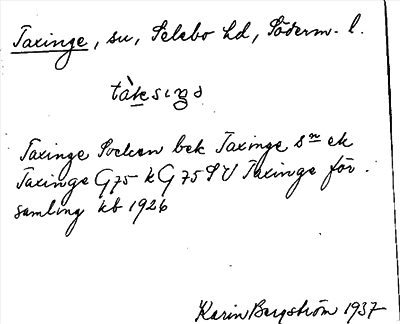 Taxinge, su, Selebo hd, Söderm. l.
tàksıŋə
Taxinge Socken bek Taxinge sn ek
Taxinge G 75 k G 75 SV Taxinge för.
samling kb 1926
Karin Bergström 1937